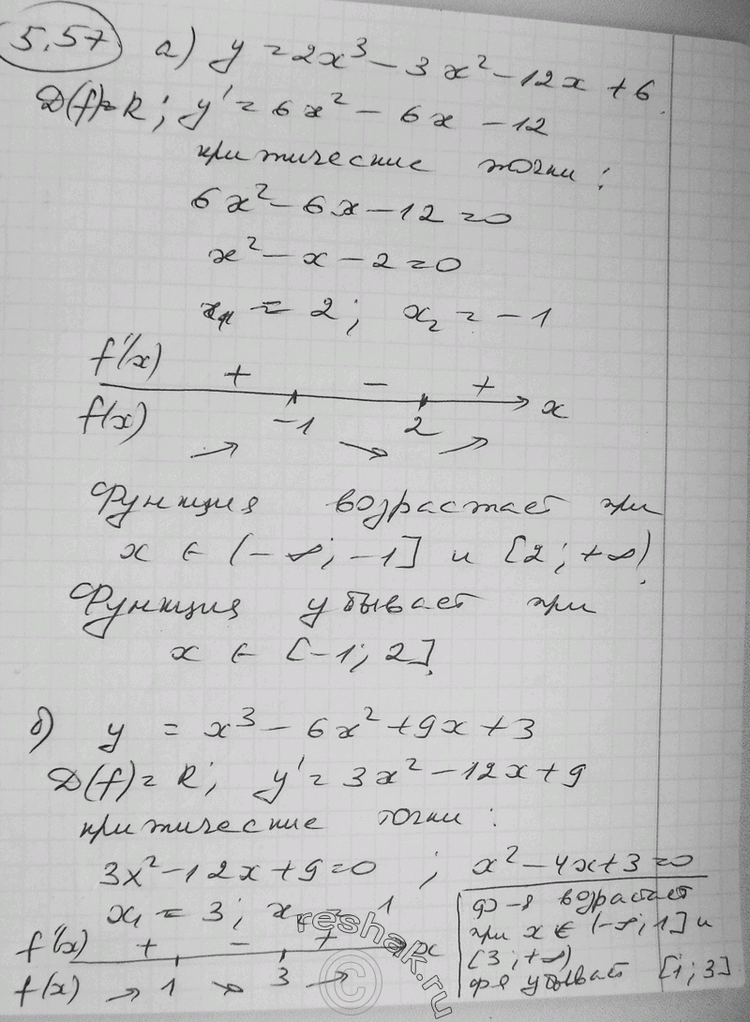 5.57 а) y = 2x³ - 3x² - 12x + 6.
D(f)=R; y' = 6x² - 6x - 12
критические точки:
6x² - 6x - 12 = 0
x² - x - 2 = 0
x₁ = 2; x₂ = -1
f'(x) + - +
x
f(x) -1 2
↗ ↘ ↗
Функция возрастает при
x ∈ (-∞; -1] и [2; +∞).
Функция убывает при
x ∈ [-1; 2].
б) y = x³ - 6x² + 9x + 3
D(f) = R; y' = 3x² - 12x + 9
критические точки:
3x² - 12x + 9 = 0; x² - 4x + 3 = 0
x₁ = 3; x₂ = 1
f'(x) + - + x
f(x) ↗ 1 ↘ 3 ↗
ф-я возрастает
при x ∈ (-∞; 1] и
[3; +∞)
ф-я убывает [1; 3]
reshak.ru
©